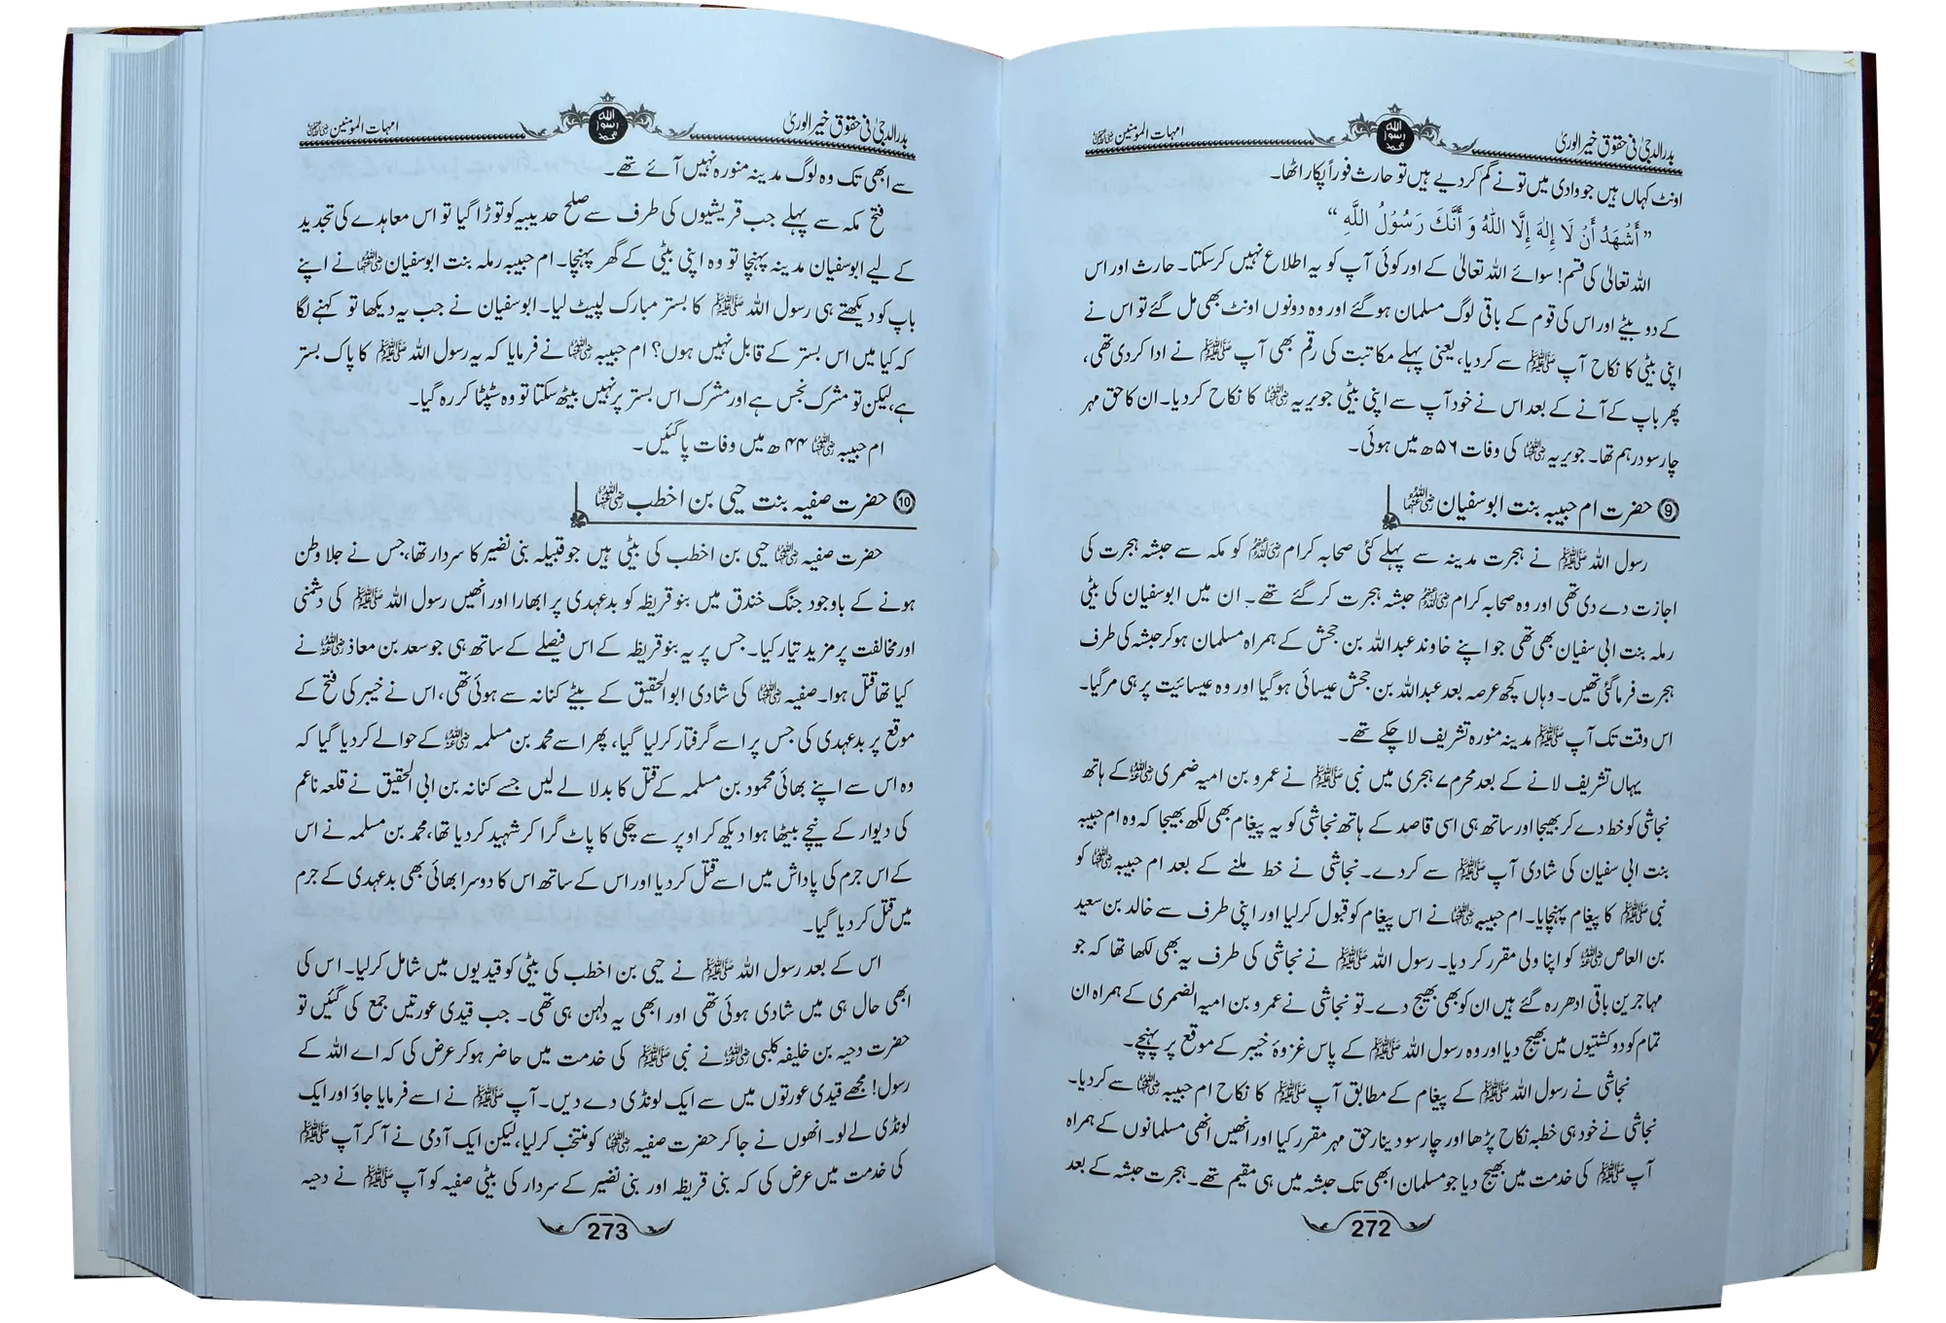 بدرالدجیٰ فی حقوق خیرالوریٰ
امہات المؤمنین رضی اللہ عنہن
اونٹ کہاں ہیں جو وادی میں تو نے گم کر دیے ہیں تو حارث فوراً پکار اٹھا۔
”أَشْهَدُ أَنْ لَا إِلٰهَ إِلَّا اللّٰهُ وَ أَنَّكَ رَسُوْلُ اللّٰهِ“
اللہ تعالیٰ کی قسم! سوائے اللہ تعالیٰ کے اور کوئی آپ کو یہ اطلاع نہیں کر سکتا۔ حارث اور اس
کے دو بیٹے اور اس کی قوم کے باقی لوگ مسلمان ہو گئے اور وہ دونوں اونٹ بھی مل گئے تو اس نے
اپنی بیٹی کا نکاح آپ ﷺ سے کر دیا، یعنی پہلے مکاتبت کی رقم بھی آپ ﷺ نے ادا کر دی تھی،
پھر باپ کے آنے کے بعد اس نے خود آپ سے اپنی بیٹی جویریہ رضی اللہ عنہا کا نکاح کر دیا۔ ان کا حق مہر
چار سو درہم تھا۔ جویریہ رضی اللہ عنہا کی وفات ۵۶ھ میں ہوئی۔
⑨ حضرت ام حبیبہ بنت ابوسفیان رضی اللہ عنہا
رسول اللہ ﷺ نے ہجرت مدینہ سے پہلے کئی صحابہ کرام رضی اللہ عنہم کو مکہ سے حبشہ ہجرت کی
اجازت دے دی تھی اور وہ صحابہ کرام رضی اللہ عنہم حبشہ ہجرت کر گئے تھے۔ ان میں ابوسفیان کی بیٹی
رملہ بنت ابی سفیان بھی تھی جو اپنے خاوند عبداللہ بن جحش کے ہمراہ مسلمان ہو کر حبشہ کی طرف
ہجرت فرما گئی تھیں۔ وہاں کچھ عرصہ بعد عبداللہ بن جحش عیسائی ہو گیا اور وہ عیسائیت پر ہی مر گیا۔
اس وقت تک آپ ﷺ مدینہ منورہ تشریف لا چکے تھے۔
یہاں تشریف لانے کے بعد محرم ۷ ہجری میں نبی ﷺ نے عمرو بن امیہ ضمری رضی اللہ عنہ کے ہاتھ
نجاشی کو خط دے کر بھیجا اور ساتھ ہی اسی قاصد کے ہاتھ نجاشی کو یہ پیغام بھی لکھ بھیجا کہ وہ ام حبیبہ
بنت ابی سفیان کی شادی آپ ﷺ سے کر دے۔ نجاشی نے خط ملنے کے بعد ام حبیبہ رضی اللہ عنہا کو
نبی ﷺ کا پیغام پہنچایا۔ ام حبیبہ رضی اللہ عنہا نے اس پیغام کو قبول کر لیا اور اپنی طرف سے خالد بن سعید
بن العاص رضی اللہ عنہ کو اپنا ولی مقرر کر دیا۔ رسول اللہ ﷺ نے نجاشی کی طرف یہ بھی لکھا تھا کہ جو
مہاجرین باقی ادھر رہ گئے ہیں ان کو بھی بھیج دے۔ تو نجاشی نے عمرو بن امیہ الضمری کے ہمراہ ان
تمام کو دو کشتیوں میں بھیج دیا اور وہ رسول اللہ ﷺ کے پاس غزوۂ خیبر کے موقع پر پہنچے۔
نجاشی نے رسول اللہ ﷺ کے پیغام کے مطابق آپ ﷺ کا نکاح ام حبیبہ رضی اللہ عنہا سے کر دیا۔
نجاشی نے خود ہی خطبہ نکاح پڑھا اور چار سو دینار حق مہر مقرر کیا اور انھیں انھی مسلمانوں کے ہمراہ
آپ ﷺ کی خدمت میں بھیج دیا جو مسلمان ابھی تک حبشہ میں ہی مقیم تھے۔ ہجرت حبشہ کے بعد
272
بدرالدجیٰ فی حقوق خیرالوریٰ
امہات المؤمنین رضی اللہ عنہن
سے ابھی تک وہ لوگ مدینہ منورہ نہیں آئے تھے۔
فتح مکہ سے پہلے جب قریشیوں کی طرف سے صلح حدیبیہ کو توڑا گیا تو اس معاہدے کی تجدید
کے لیے ابوسفیان مدینہ پہنچا تو وہ اپنی بیٹی کے گھر پہنچا۔ ام حبیبہ رملہ بنت ابوسفیان رضی اللہ عنہا نے اپنے
باپ کو دیکھتے ہی رسول اللہ ﷺ کا بستر مبارک لپیٹ لیا۔ ابوسفیان نے جب یہ دیکھا تو کہنے لگا
کہ کیا میں اس بستر کے قابل نہیں ہوں؟ ام حبیبہ رضی اللہ عنہا نے فرمایا کہ یہ رسول اللہ ﷺ کا پاک بستر
ہے، لیکن تو مشرک نجس ہے اور مشرک اس بستر پر نہیں بیٹھ سکتا تو وہ سٹپٹا کر رہ گیا۔
ام حبیبہ رضی اللہ عنہا ۴۴ھ میں وفات پا گئیں۔
⑩ حضرت صفیہ بنت حیی بن اخطب رضی اللہ عنہا
حضرت صفیہ رضی اللہ عنہا حیی بن اخطب کی بیٹی ہیں جو قبیلہ بنی نضیر کا سردار تھا، جس نے جلا وطن
ہونے کے باوجود جنگ خندق میں بنو قریظہ کو بدعہدی پر ابھارا اور انھیں رسول اللہ ﷺ کی دشمنی
اور مخالفت پر مزید تیار کیا۔ جس پر یہ بنو قریظہ کے اس فیصلے کے ساتھ ہی جو سعد بن معاذ رضی اللہ عنہ نے
کیا تھا قتل ہوا۔ صفیہ رضی اللہ عنہا کی شادی ابو الحقیق کے بیٹے کنانہ سے ہوئی تھی، اس نے خیبر کی فتح کے
موقع پر بدعہدی کی جس پر اسے گرفتار کر لیا گیا، پھر اسے محمد بن مسلمہ رضی اللہ عنہ کے حوالے کر دیا گیا کہ
وہ اس سے اپنے بھائی محمود بن مسلمہ کے قتل کا بدلا لے لیں جسے کنانہ بن ابی الحقیق نے قلعہ ناعم
کی دیوار کے نیچے بیٹھا ہوا دیکھ کر اوپر سے چکی کا پاٹ گرا کر شہید کر دیا تھا، محمد بن مسلمہ نے اس
کے اس جرم کی پاداش میں اسے قتل کر دیا اور اس کے ساتھ اس کا دوسرا بھائی بھی بدعہدی کے جرم
میں قتل کر دیا گیا۔
اس کے بعد رسول اللہ ﷺ نے حیی بن اخطب کی بیٹی کو قیدیوں میں شامل کر لیا۔ اس کی
ابھی حال ہی میں شادی ہوئی تھی اور ابھی یہ دلہن ہی تھی۔ جب قیدی عورتیں جمع کی گئیں تو
حضرت دحیہ بن خلیفہ کلبی رضی اللہ عنہ نے نبی ﷺ کی خدمت میں حاضر ہو کر عرض کی کہ اے اللہ کے
رسول! مجھے قیدی عورتوں میں سے ایک لونڈی دے دیں۔ آپ ﷺ نے اسے فرمایا جاؤ اور ایک
لونڈی لے لو۔ انھوں نے جا کر حضرت صفیہ رضی اللہ عنہا کو منتخب کر لیا، لیکن ایک آدمی نے آ کر آپ ﷺ
کی خدمت میں عرض کی کہ بنی قریظہ اور بنی نضیر کے سردار کی بیٹی صفیہ کو آپ ﷺ نے دحیہ
273